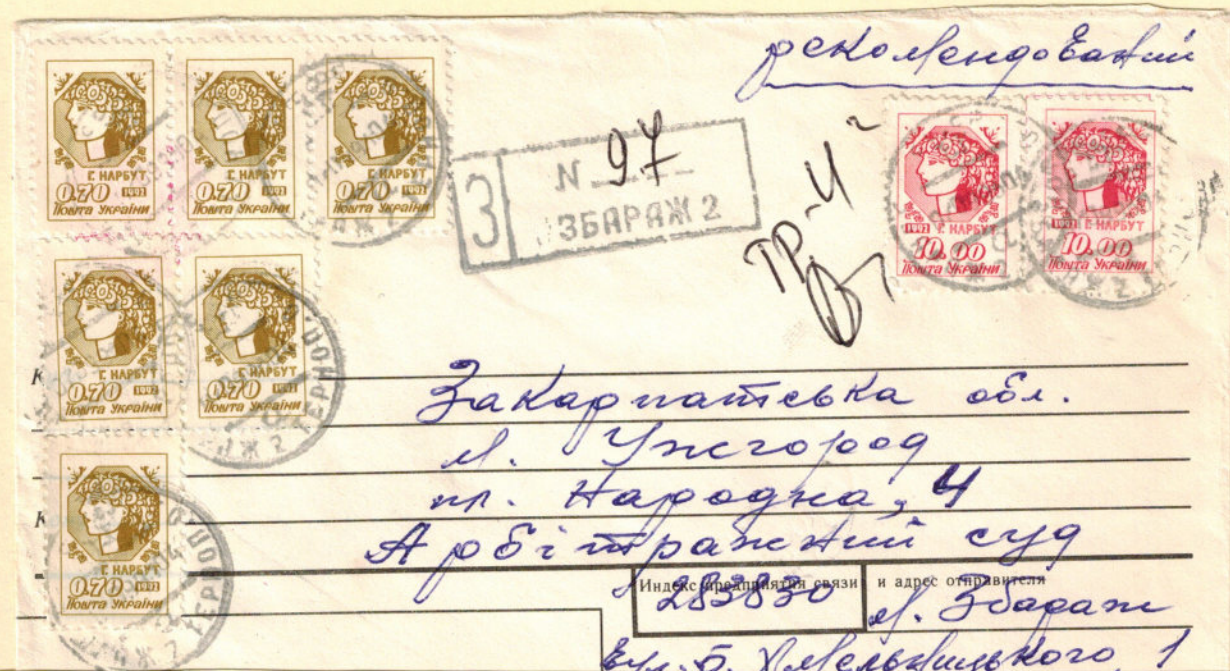 рекомендований
Г. НАРБУТ
0.70 1992
Пошта України
Г. НАРБУТ
0.70 1992
Пошта України
Г. НАРБУТ
0.70 1992
Пошта України
З
N 97
ЗБАРАЖ 2
1992 Г. НАРБУТ
10.00
Пошта України
1992 Г. НАРБУТ
10.00
Пошта України
Г. НАРБУТ
0.70 1992
Пошта України
Г. НАРБУТ
0.70 1992
Пошта України
Г. НАРБУТ
0.70 1992
Пошта України
К
Закарпатська обл.
м. Ужгород
К
пл. Народна, 4
Арбітражний суд
Индекс предприятия связи и адрес отправителя
283830 м. Збараж
вул. Б. Хмельницького 1